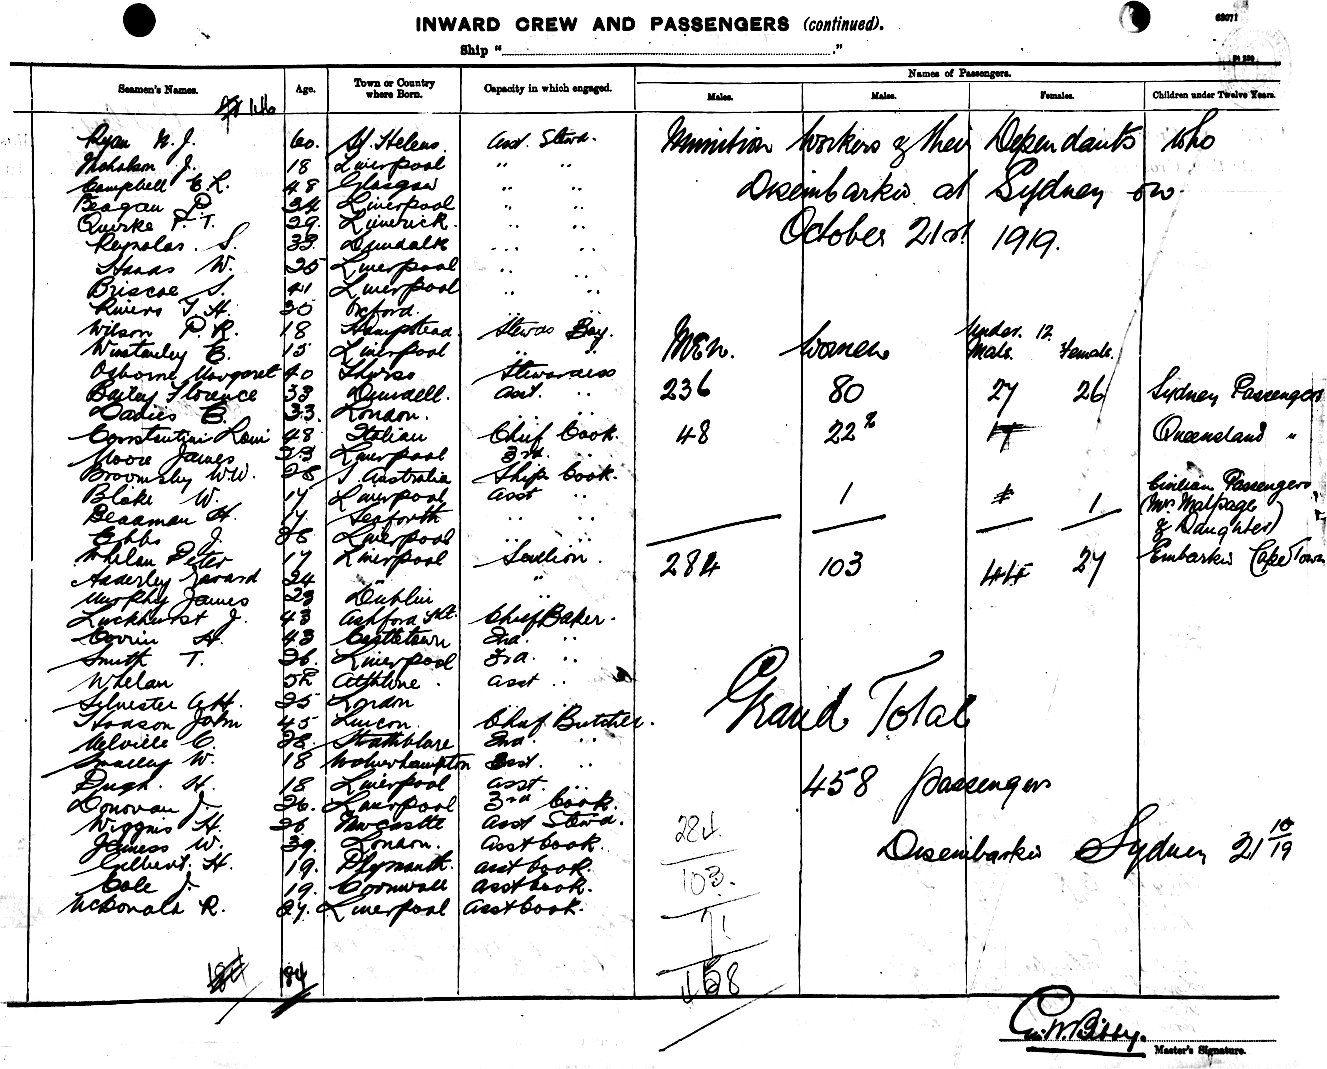 68071
INWARD CREW AND PASSENGERS (continued).
Ship " "
Seamen's Names. Age. Town or Country where Born. Capacity in which engaged. Names of Passengers.
Males. Males. Females. Children under Twelve Years.
146
Ryan 60. St. Helens. Asst. Stewd.
Nicholson J. 18 Liverpool " "
Campbell C R. 48 Glasgow " "
Beagan P. 34 Liverpool " "
Quirke P. T. 29. Limerick. " "
Reynolds. S. 33. Dundalk " "
W. 25 Liverpool " "
Briscoe S. 41 Liverpool " "
Rivers T. H. 30 Oxford. " "
Wilson P. R. 18 Hampstead. Stewds Boy.
Winstanley C. 15 Liverpool " "
Osborne Margaret 40 Thurso Stewardess
Bailey Florence 33 Asst. "
Davies C. 33. London. " "
Constantini 48 Italian Chief Cook.
Moore James 23 Liverpool 3rd "
Broomsby W.W. 28 S. Australia Ships Cook.
Blake W. 17 Liverpool Asst "
Beaaman H. 17 Seaforth " "
J. 28 Liverpool " "
Whelan Peter 17 Liverpool Scullion.
Adderley 24 " "
Murphy James 23 Dublin
Luckhurst J. 43 Ashford Kt. Chief Baker.
Corrin H. 43 Castletown 2nd. "
Smith T. 26. Liverpool 3rd. "
Whelan Athlone. asst "
Sylvester A.H. 25 London
Hodson John 45 Lincoln. Chief Butcher.
Melville C. 28. Strathblane 2nd. "
Smalley W. 18 Wolverhampton Asst. "
Pugh. H. 18 Liverpool asst. "
Donovan J. 26. Liverpool 3rd Cook.
Wiggins H. 26 Newcastle Asst Stewd.
W. 39. London. Asst Cook.
Gilbert. H. 19. Plymouth. asst Cook.
Cole J. 19. Cornwall asst Cook.
McDonald R. 27. Liverpool asst Cook.
184 184
Munition Workers & their Dependants who
Disembarked at Sydney on
October 21st 1919.
Men. Women Under. 12
Males. Females.
236 80 27 26 Sydney Passengers
48 22 17 Queensland "
1 1 Civilian Passengers
Mrs Malpage
& Daughter
284 103 44 27 Embarked Cape Town
Grand Total
458 passengers
Disembarked Sydney 21 10/19
284.
103.
71
458
Master's Signature.